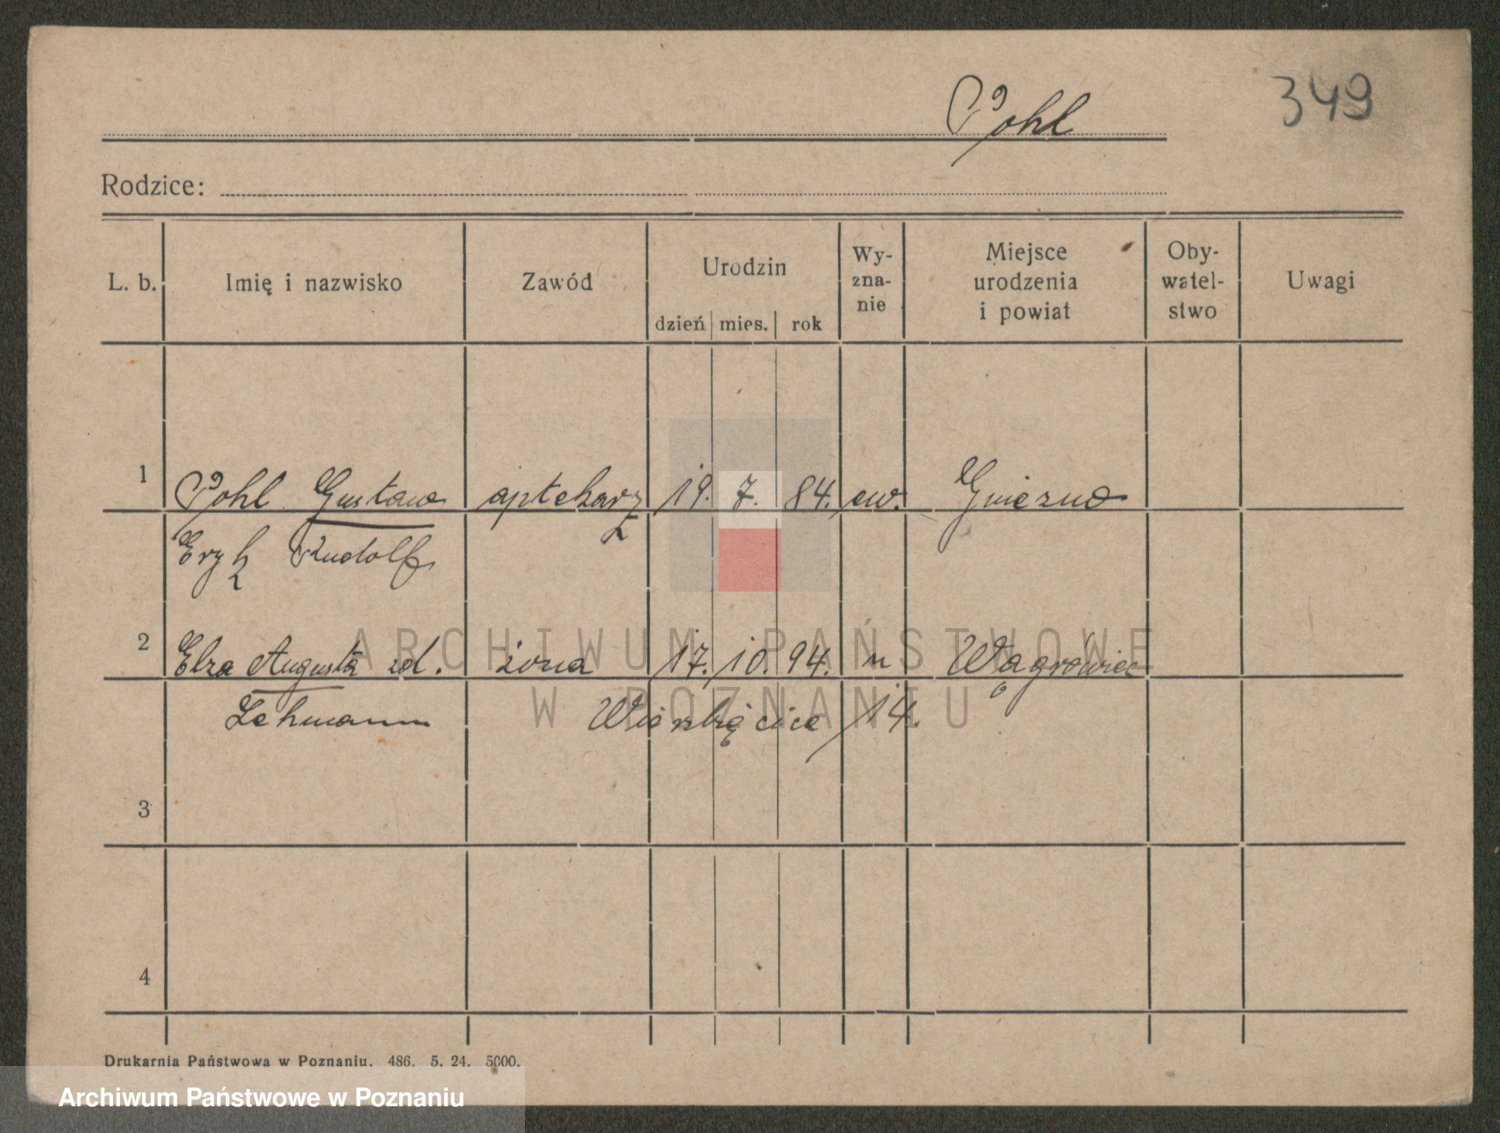 Pohl
349
Rodzice:
L. b.
Imię i nazwisko
Zawód
Urodzin
dzień mies. rok
Wy-
zna-
nie
Miejsce
urodzenia
i powiat
Oby-
watel-
stwo
Uwagi
1 Pohl Gustaw aptekarz 19. 7. 84. ew. Gniezno
Eryk Rudolf
2 Elza Augusta zd. żona 17. 10. 94. " Wągrowiec
Lehmann Wierzbięcice 14.
3
4
Drukarnia Państwowa w Poznaniu. 486. 5. 24. 5000.
ARCHIWUM PAŃSTWOWE
W POZNANIU
Archiwum Państwowe w Poznaniu